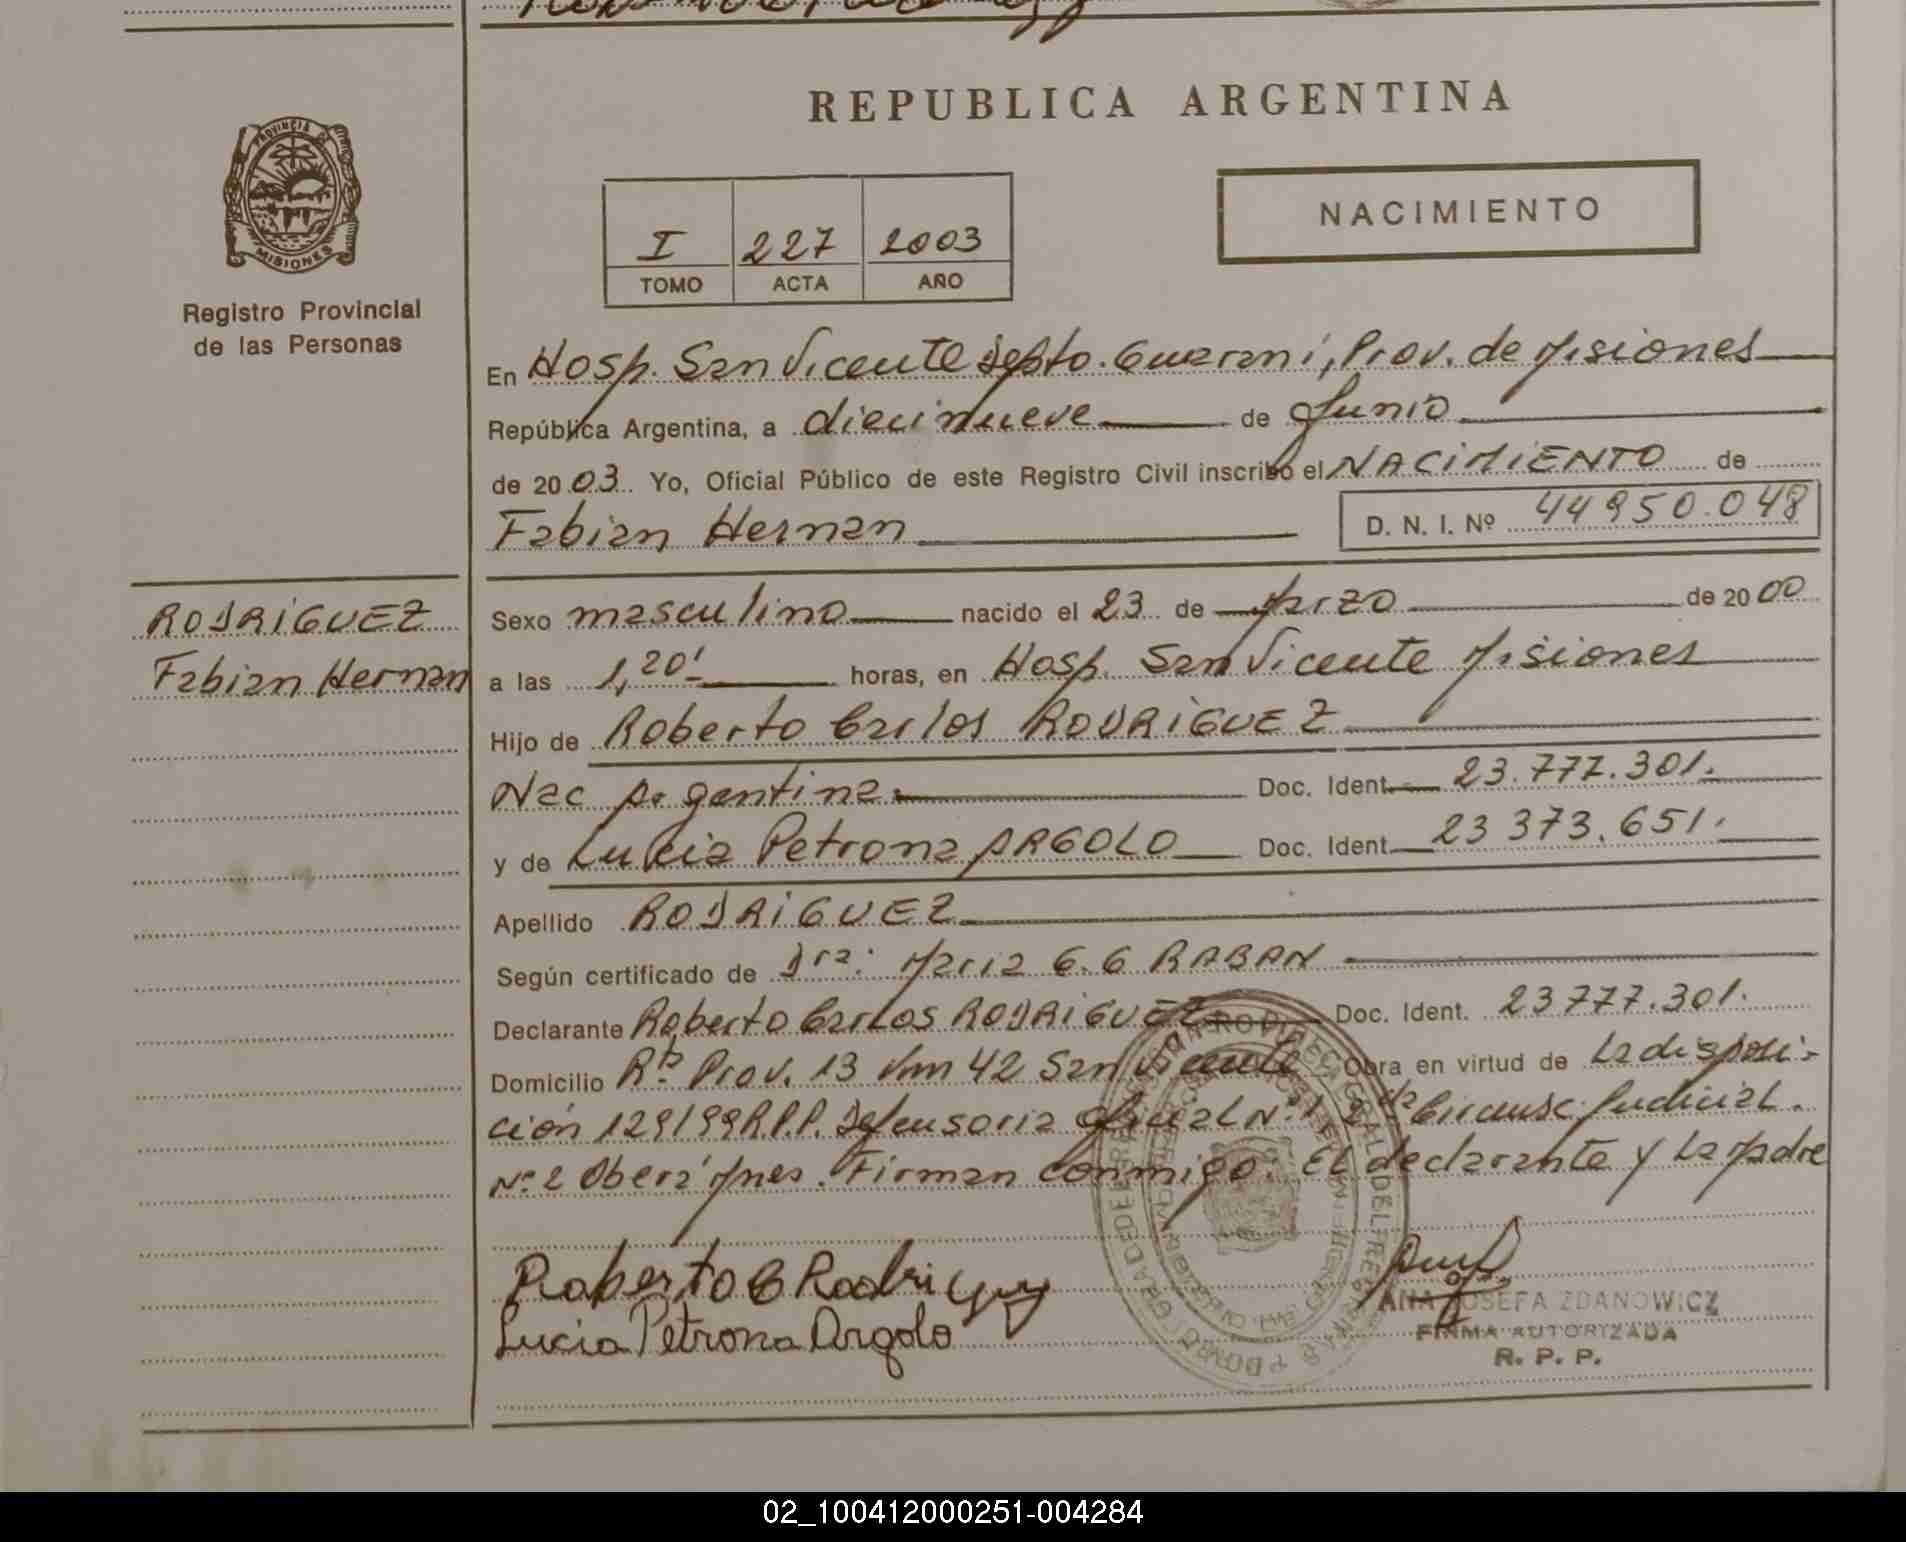 REPUBLICA ARGENTINA
PROVINCIA DE
MISIONES
Registro Provincial
de las Personas
NACIMIENTO
I 227 2003
TOMO ACTA AÑO
En Hosp. San Vicente Depto. Guarani, Prov. de Misiones
República Argentina, a diecinueve de Junio
de 2003 Yo, Oficial Público de este Registro Civil inscribo el NACIMIENTO de
Fabian Hernan D. N. I. Nº 44950.048
RODRIGUEZ
Fabian Hernan
Sexo masculino nacido el 23 de Marzo de 2000
a las 1,20' horas, en Hosp. San Vicente Misiones
Hijo de Roberto Carlos RODRIGUEZ
Nac Argentina Doc. Ident. 23.777.301.
y de Lucia Petrona ARGOLO Doc. Ident. 23 373.651.
Apellido RODRIGUEZ
Según certificado de Dra: Maria G. G RABAN
Declarante Roberto Carlos RODRIGUEZ Doc. Ident. 23777.301.
Domicilio Rta Prov. 13 Km 42 San Vicente Obra en virtud de La disposi-
ción 129/99 R.P.P. Defensoria Oficial Nº 1 2da Circunsc. Judicial.
Nº 2 Oberá Mnes. Firman conmigo: El declarante y La Madre
Roberto C Rodriguez
Lucia Petrona Argolo
ANA JOSEFA ZDANOWICZ
FIRMA AUTORIZADA
R. P. P.
02_100412000251-004284